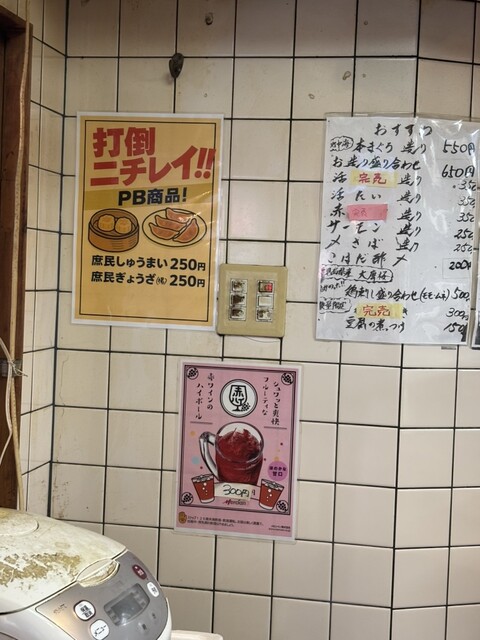 打倒
ニチレイ!!
PB商品!
庶民しゅうまい 250円
庶民ぎょうざ(焼) 250円
おすすめ
本まぐろ 造り 550円
お造り盛り合わせ 650円
活 完売 造り 350
活 たい 造り 350
赤 造り 350
サーモン 造り 250
〆さば 造り 250
こはだ酢〆 200円
鶏刺し盛り合わせ(モモ・ムネ) 500
完売 300円
豆腐の煮つけ 150円
シュワっと爽快
フルーティな
赤ワインの
ハイボール
赤ハイ
ほのかな
甘口
300円
メニュー